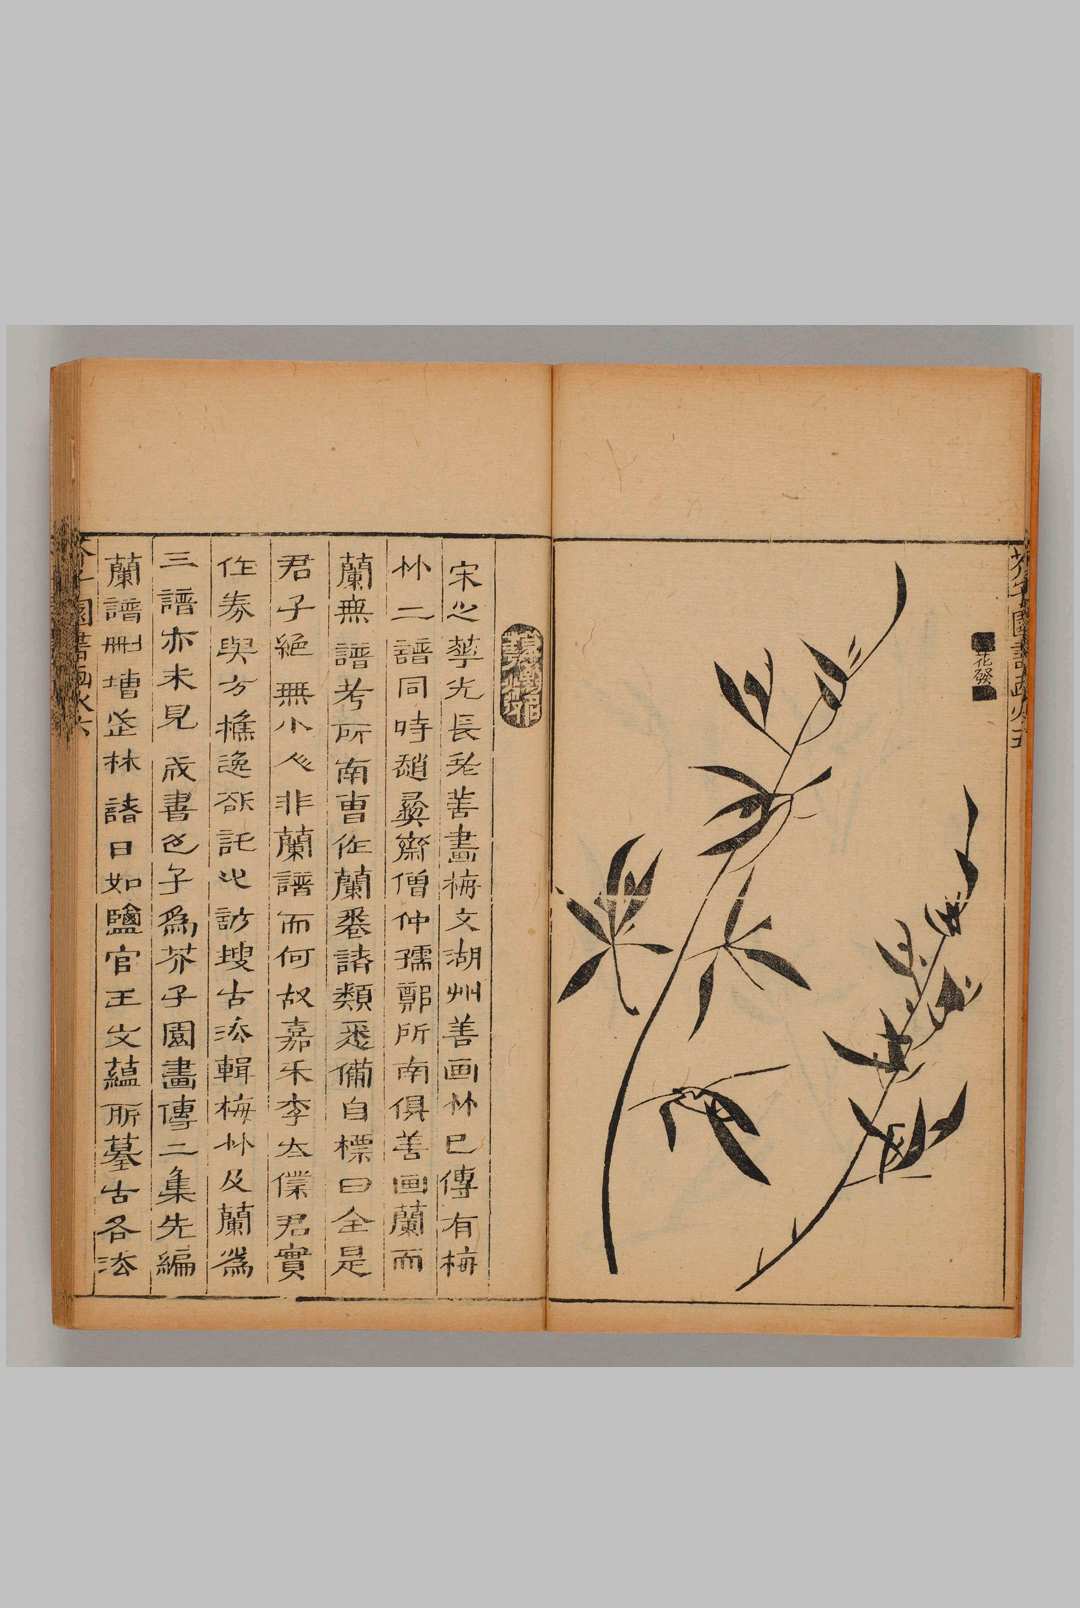 花發
宋之華光長老善畫梅文湖州善画竹已傳有梅
竹二譜同時趙彝齋僧仲孺鄭所南俱善画蘭而
蘭無譜考所南曹作蘭卷諸類悉備自標曰全是
君子絕無小人非蘭譜而何故嘉禾李太僕君實
作券與方樵逸欲託訪搜古法輯梅竹及蘭為
三譜亦未見成書邑子為芥子園畫傳二集先編
蘭譜刪增林諸日如鹽官王文蘊所摹古各法